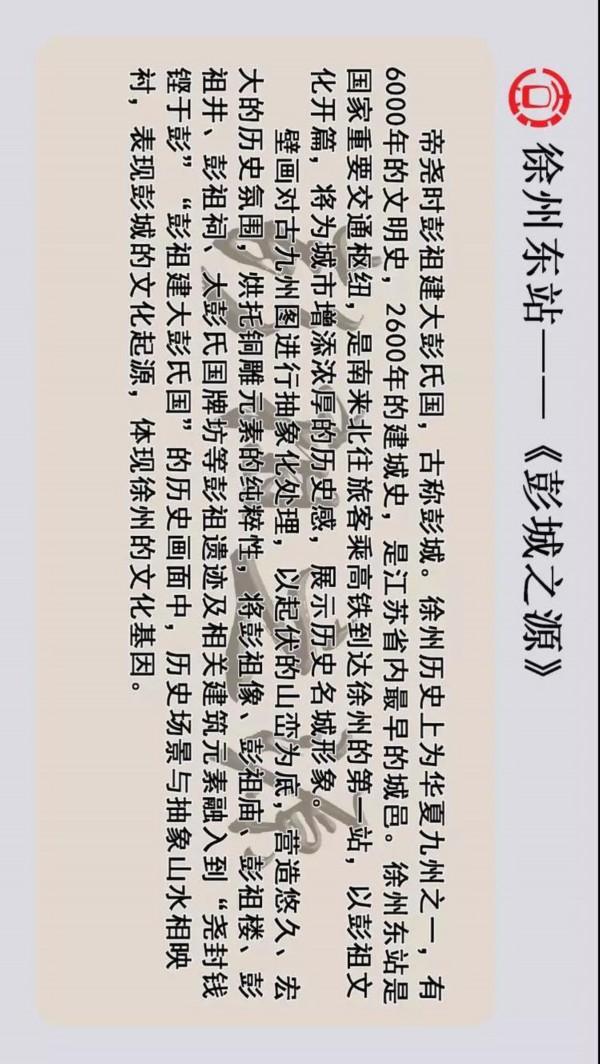 徐州东站——《彭城之源》
帝尧时彭祖建大彭氏国，古称彭城。徐州历史上为华夏九州之一，有
6000年的文明史，2600年的建城史，是江苏省内最早的城邑。徐州东站是
国家重要交通枢纽，是南来北往旅客乘高铁到达徐州的第一站，以彭祖文
化开篇，将为城市增添浓厚的历史感，展示历史名城形象。
壁画对古九州图进行抽象化处理，以起伏的山峦为底，营造悠久、宏
大的历史氛围，烘托铜雕元素的纯粹性，将彭祖像、彭祖庙、彭祖楼、彭
祖井、彭祖祠、大彭氏国牌坊等彭祖遗迹及相关建筑元素融入到“尧封钱
铿于彭”“彭祖建大彭氏国”的历史画面中，历史场景与抽象山水相映
衬，表现彭城的文化起源，体现徐州的文化基因。